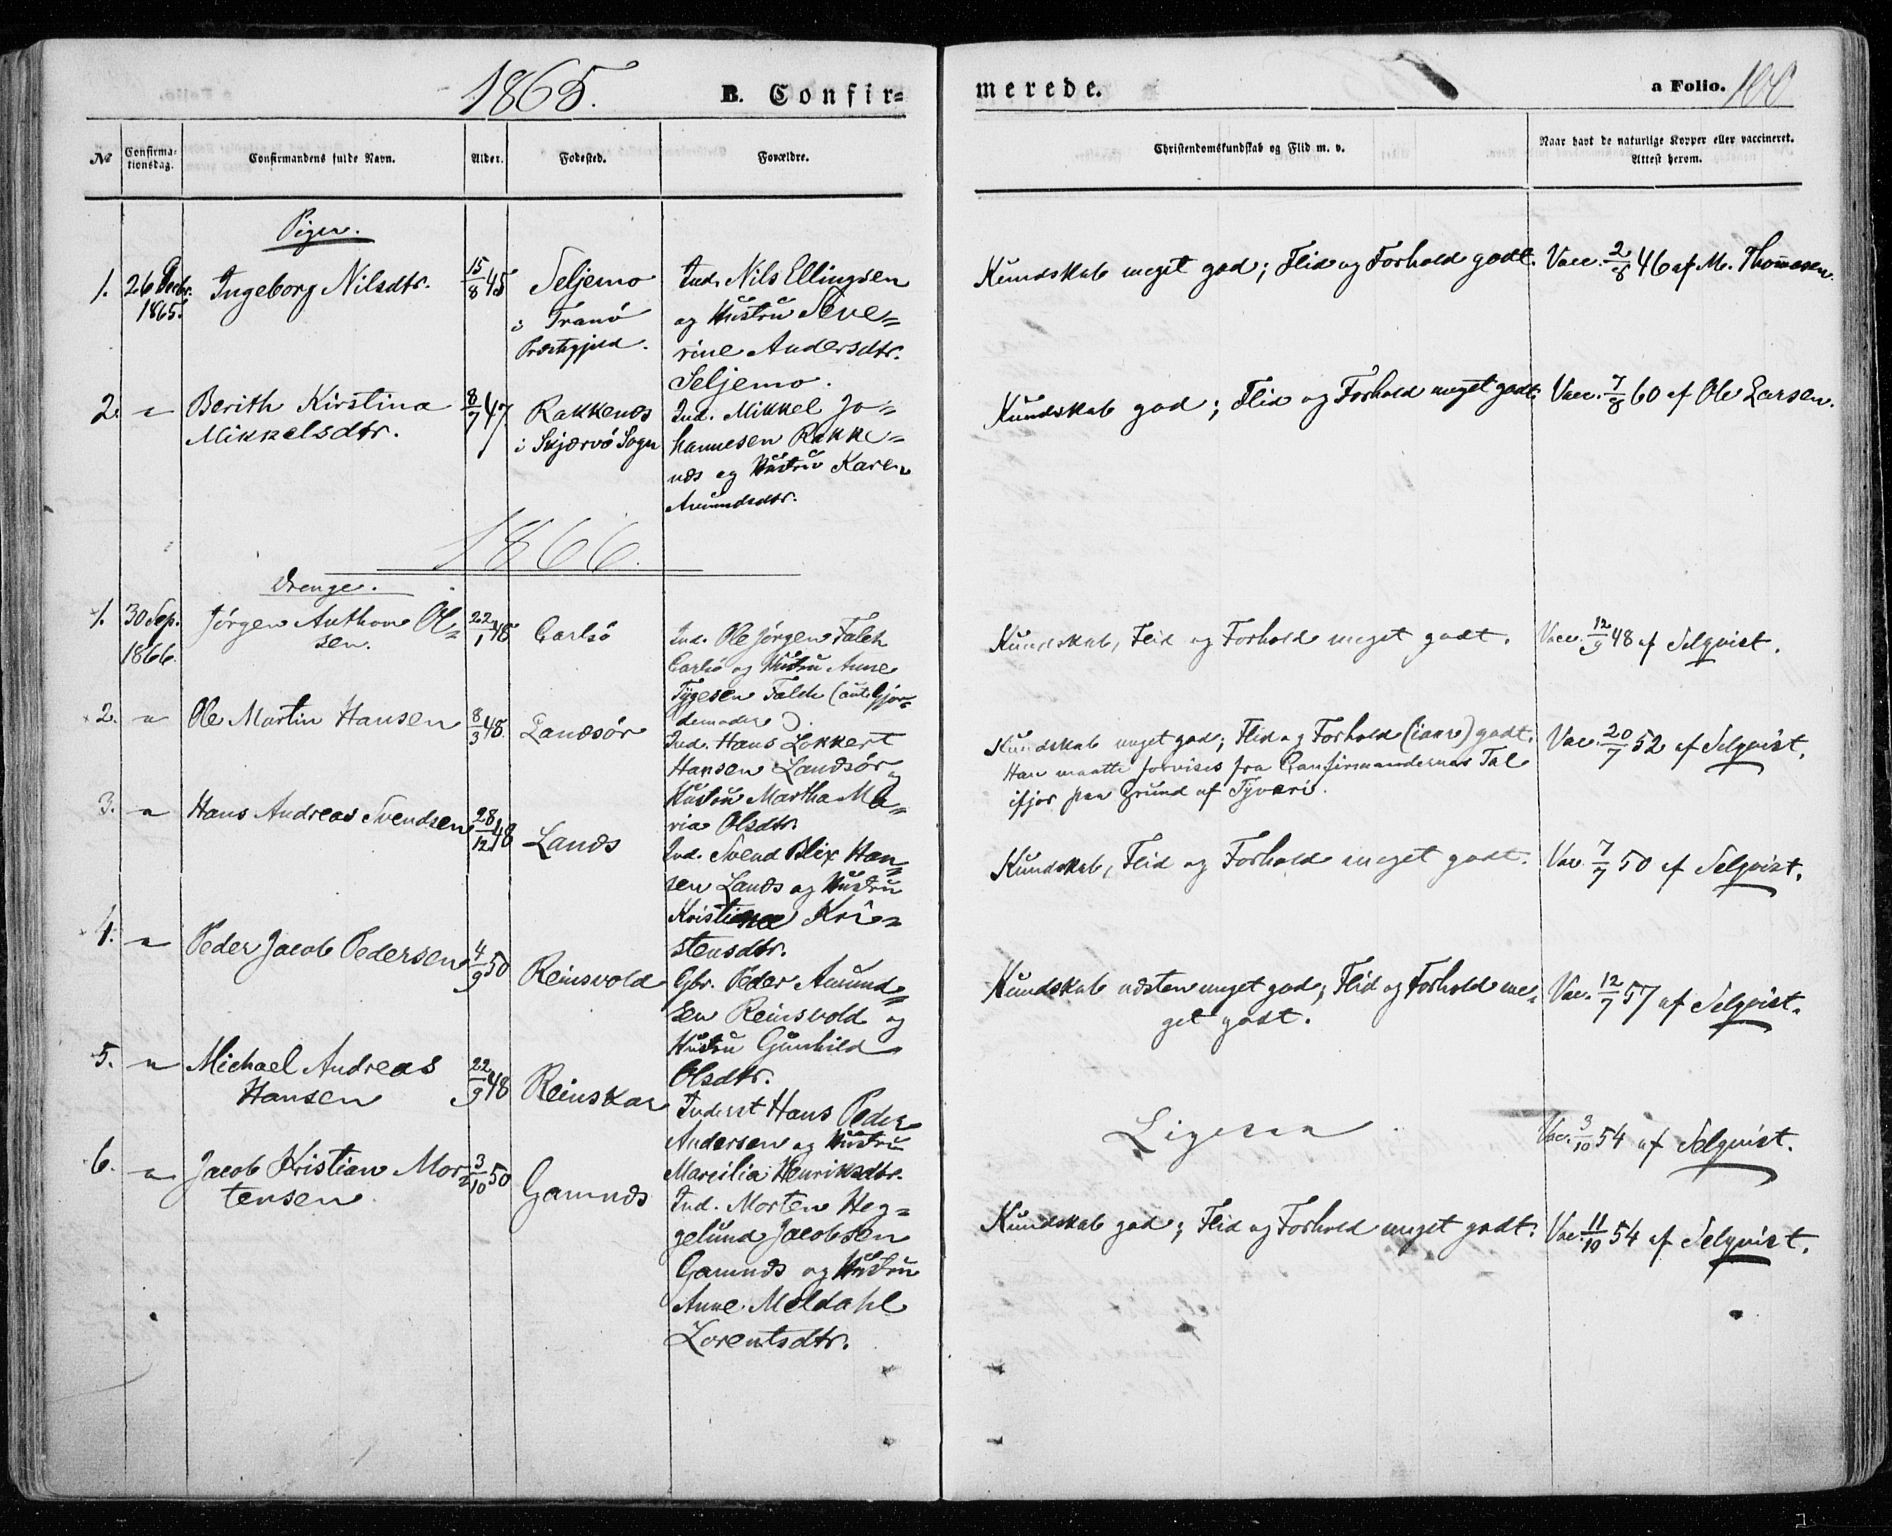 1865.
B. Confirmerede.
a Folio. 100
No Confirmationsdag. Confirmandens fulde Navn. Alder. Fodested. Forældre. Christendomskundskab og Flid m. v. Naar havt de naturlige Kopper eller vaccineret. Attest herom.
Piger.
1. 26 Decbr. 1865. Ingeborg Nilsdtr. 15/8 45 Seljemo i Tranö Præstegjeld. Ind. Nils Ellingsen
og Hustru Seve=
rine Andersdtr.
Seljemo.
Kundskab meget god; Flid og Forhold godt. Vacc. 2/8 46 af M. Thomesen.
2. " Berith Kirstina
Mikkelsdtr. 8/7 47. Rakkenæs
i Skjærvö Sogn
Ind. Mikkel Jo=
hannesen Rakke=
næs og Hustru Karen
Amundsdtr.
Kundskab god; Flid og Forhold meget godt. Vacc. 7/8 60 af Ole Larsen.
1866.
Drenge.
1. 30 Sep. 1866. Jørgen Anthon Ol=
sen. 22/1 48 Carlsö
Ind. Ole Jørgen Falch
Carlsö og Hustru Anne
Tygesen Falch (
demoder).
Kundskab, Flid og Forhold meget godt. Vacc. 12/9 48 af Selqvist.
2. " Ole Martin Hansen 8/3 48. Landsör
Ind. Hans Lokkert
Hansen Landsör og
Hustru Martha Ma=
ria Olsdtr.
Kundskab meget god; Flid og Forhold (iaar) godt.
Han maatte forvises fra Confirmandernes Tal
ifjor paa Grund af Tyveri.
Vac. 20/7 52 af Selqvist.
3. " Hans Andreas Svendsen 28/12 48 Lanæs
Ind. Svend Blix Han=
sen Lanæs og Hustru
Kristiana Kri=
stensdtr.
Kundskab, Flid og Forhold meget godt. Vac. 7/7 50 af Selqvist.
4. " Peder Jacob Pedersen 4/9 50 Reinsvold
Gbr. Peder Amund=
sen Reinsvold og
Hustru Gunhild
Olsdtr.
Kundskab næsten meget god; Flid og Forhold me=
get godt.
Vac. 12/7 57 af Selqvist.
5. " Michael Andreas
Hansen 22/9 48 Reinskar
Inderst Hans Peder
Andersen og Hustru
Marsilia Henriksdtr.
Ligesaa. Vac. 3/10 54 af Selqvist.
6. " Jacob Kristian Mor=
tensen 3/10 50 Gamnæs
Ind. Morten Heg=
gelund Jacobsen
Gamnæs og Hustru
Anne Meldahl
Lorentsdtr.
Kundskab god; Flid og Forhold meget godt. Vac. 11/10 54 af Selqvist.